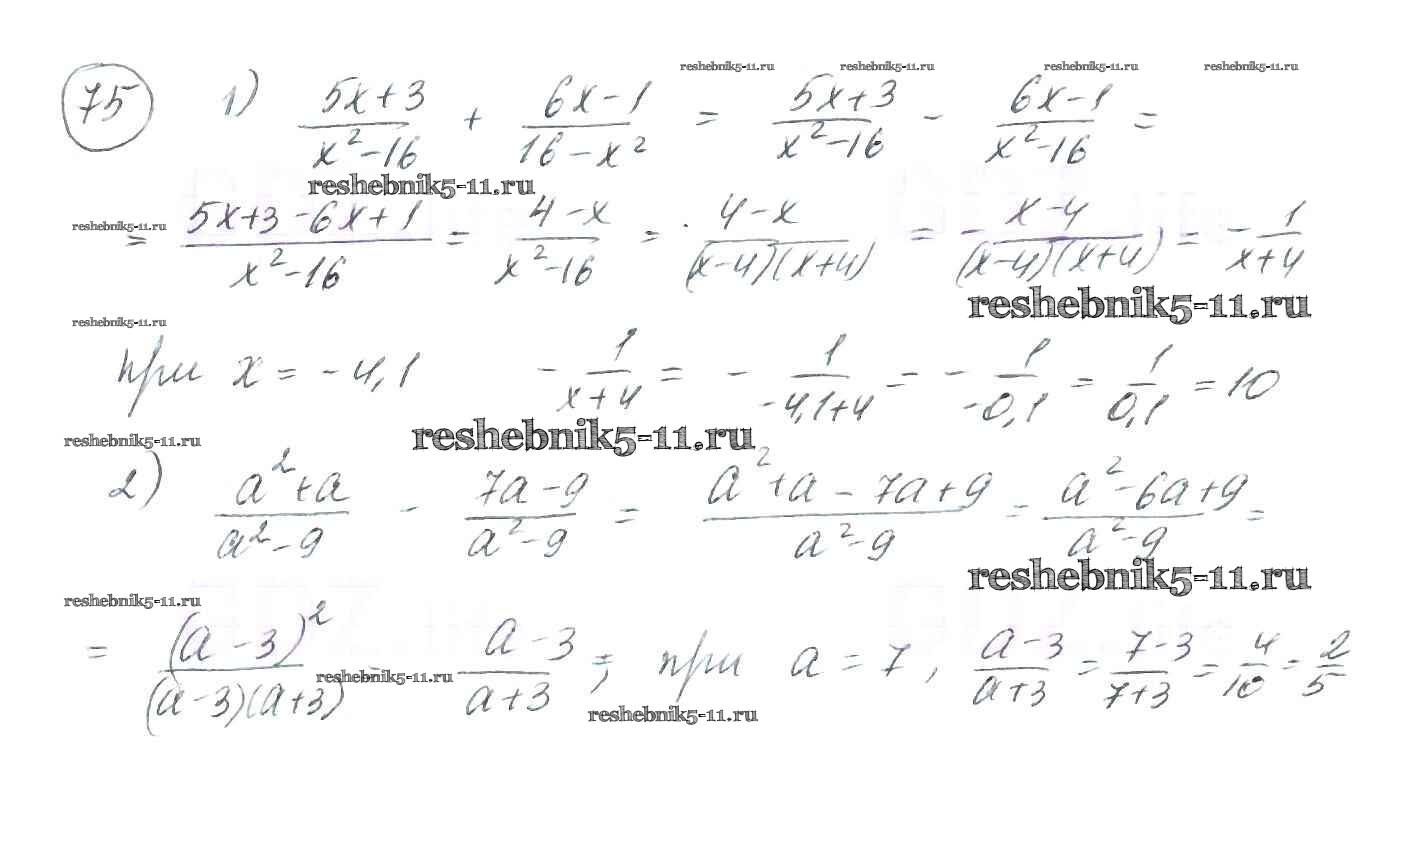 reshebnik5-11.ru reshebnik5-11.ru reshebnik5-11.ru reshebnik5-11.ru
75 1) (5x+3)/(x²-16) + (6x-1)/(16-x²) = (5x+3)/(x²-16) - (6x-1)/(x²-16) =
reshebnik5-11.ru
reshebnik5-11.ru
= (5x+3-6x+1)/(x²-16) = (4-x)/(x²-16) = (4-x)/((x-4)(x+4)) = - (x-4)/((x-4)(x+4)) = - 1/(x+4)
reshebnik5-11.ru
reshebnik5-11.ru
при x = -4,1 - 1/(x+4) = - 1/(-4,1+4) = - 1/(-0,1) = 1/(0,1) = 10
reshebnik5-11.ru reshebnik5-11.ru
2) (a²+a)/(a²-9) - (7a-9)/(a²-9) = (a²+a-7a+9)/(a²-9) = (a²-6a+9)/(a²-9) =
reshebnik5-11.ru
reshebnik5-11.ru
= (a-3)²/((a-3)(a+3)) = (a-3)/(a+3) ; при a = 7, (a-3)/(a+3) = (7-3)/(7+3) = 4/10 = 2/5
reshebnik5-11.ru
reshebnik5-11.ru